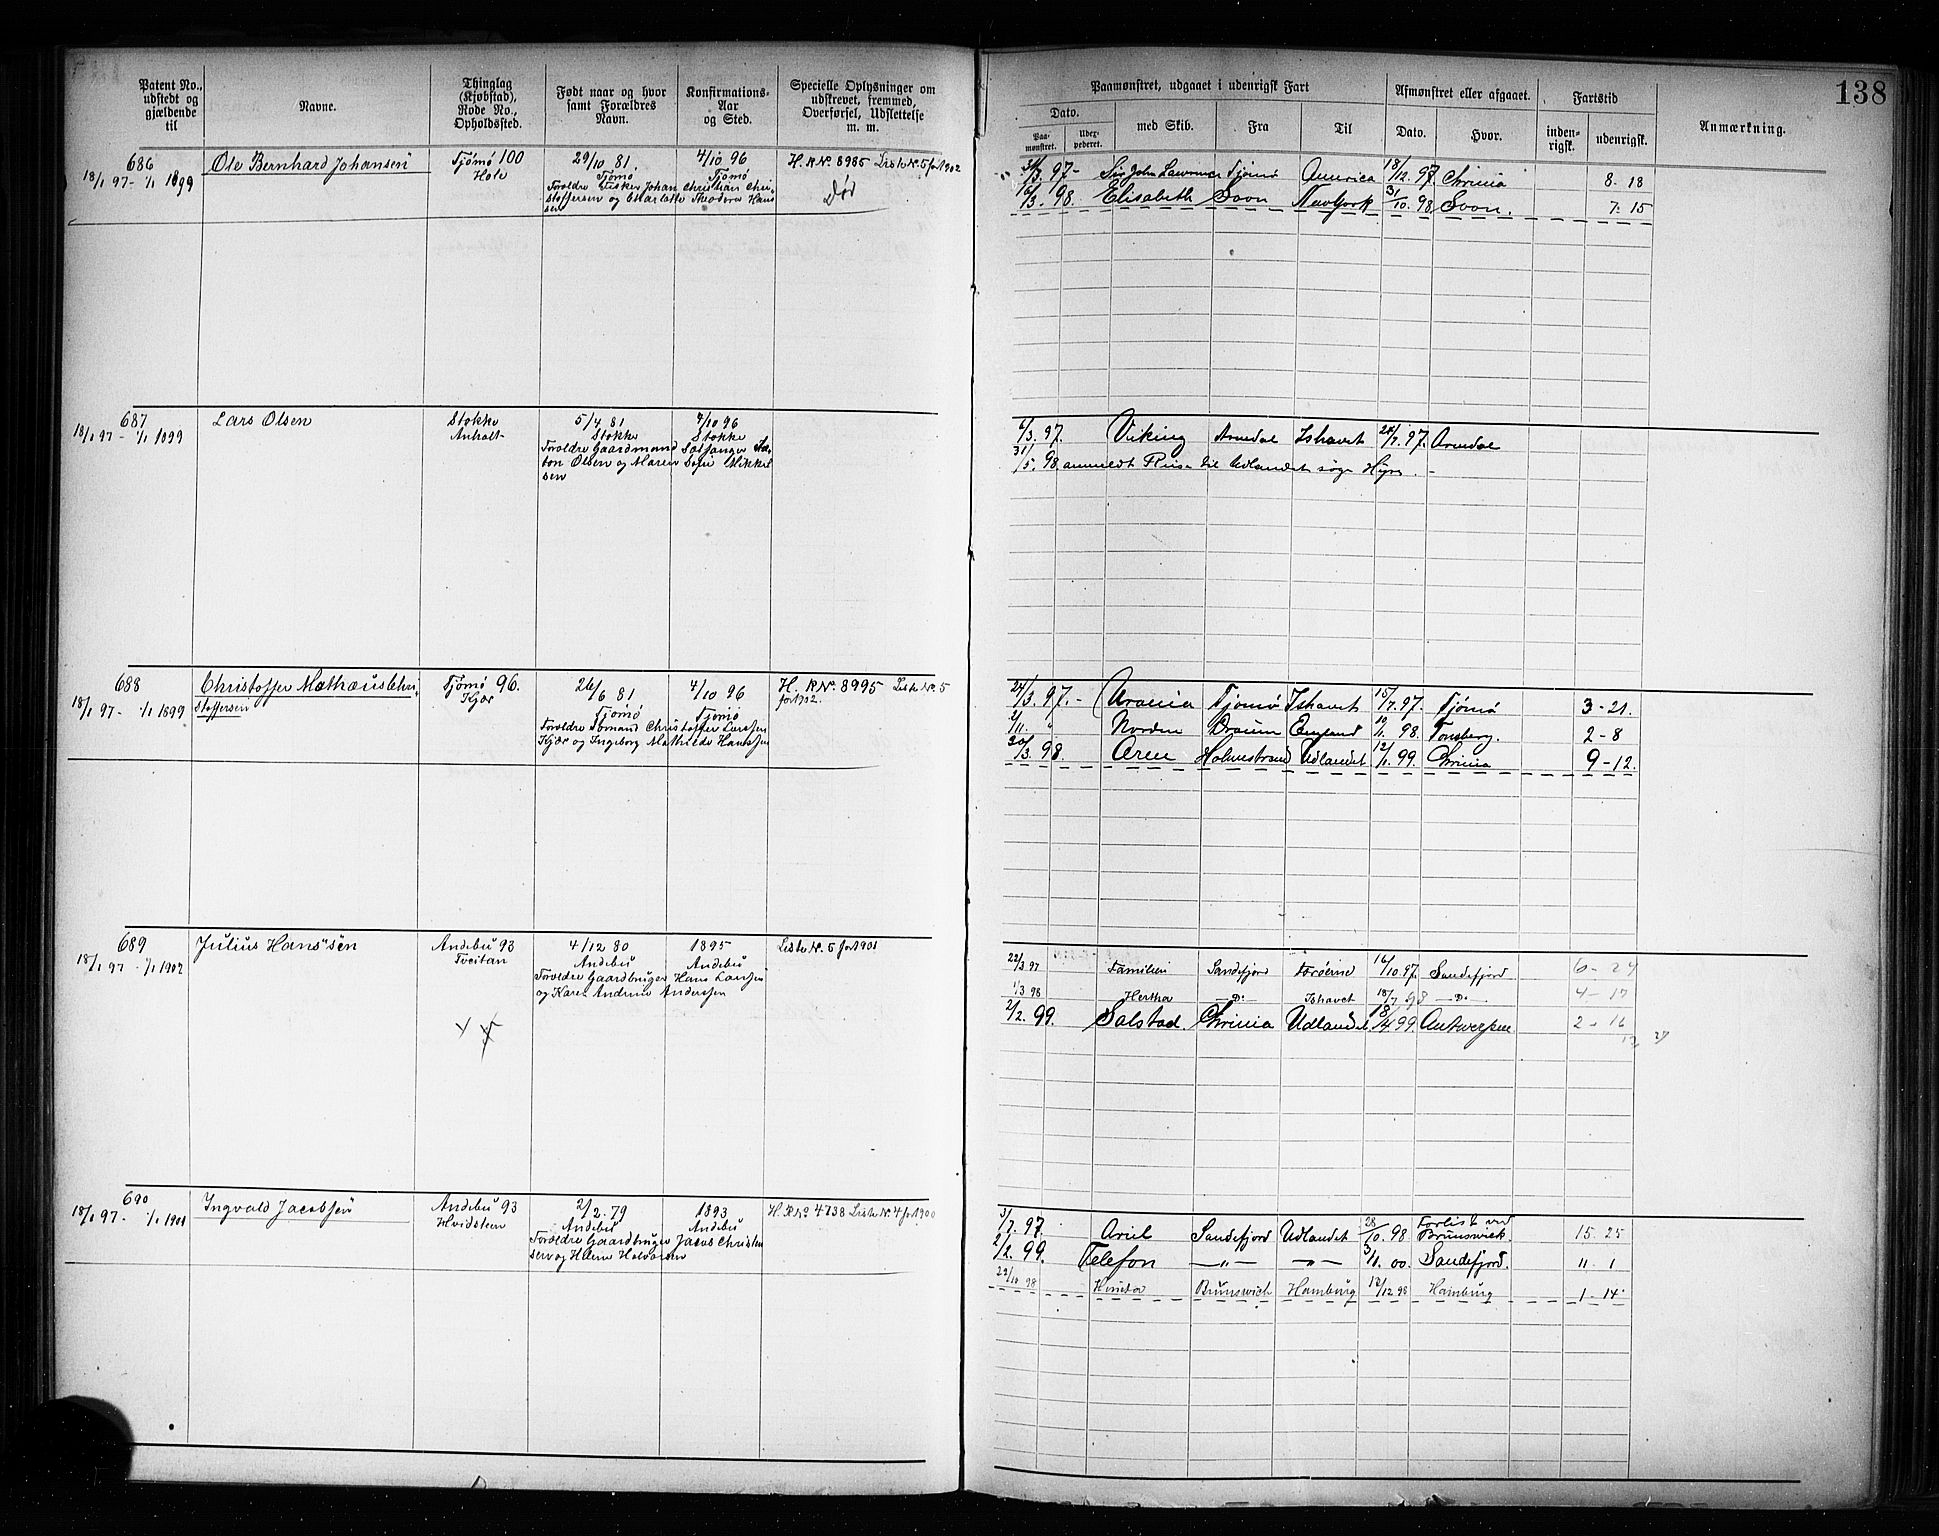 138
Patent No., udstedt og gjældende til
Navne.
Thinglag (Kjøbstad), Rode No., Opholdssted.
Født naar og hvor samt Forældres Navn.
Konfirmations-Aar og Sted.
Specielle Oplysninger om udskrevet, fremmed, Overførsel, Udslettelse m. m.
Paamønstret, udgaaet i udenrigsk Fart
Dato.
Paa-mønstret.
med Skib.
Fra
Til
Afmønstret eller afgaaet.
Dato.
Hvor.
Fartstid
inden-rigsk.
udenrigsk.
Anmærkning.
686 Ole Bernhard Johansen Tjømø 100 29/10 81. 4/10 96 H. RNr. 8985 Liste Nr. 5 for 1902
18/1 97 - 1/1 1899 Hole Tjømø Tjømø Død
Foreldre Fisker Johan Christian Chri-
stoffersen og Charlotte Theodora Hans
sen
3. 97 - Sir John Lawrence Tjømø America 18/12. 97. Chrinia 8. 18
/3. 98. Elisabeth Svon New York 31/10. 98 Svon. 7. 15
687 Lars Olsen Stokke 5/4 81 4/10 96
18/1 97 - 1/1 1899 Anholt Stokke Stokke
Foreldre Gaardmand
Olsen og Maren Sofie Mikkel
sen
6/3. 97. Viking Arendal Ishavet 97. Arendal
31/5. 98 anmeldt Reise til Udlandet søge Hyre. -
688 Christoffer Mathæus Chri- Tjømø 96. 26/6 81 4/10 96 H. RNr. 8995 Liste Nr. 5
18/1 97 - 1/1 1899 stoffersen Kjær Tjømø Tjømø
Foreldre Sømand Christoffer Larssen
Kjær og Ingeborg Mathilde Hanssen
24/3. 97. - Urania Tjømø Ishavet 15/7. 97. Tjømø 3 - 21.
2/11. " Norden Drauen England 10/1. 98. Tønsberg. 2 - 8
20/3. 98. Aren Holmestrand Udlandet 12/1. 99. Chrinia 9 - 12.
689 Julius Hanssen Andebu 93 4/12 80 1895 Liste Nr. 5 for 1901
18/1 97 - 1/1 1902 Tveitan Andebu Andebu
Foreldre Gaardbruger Hans Larssen
og Karen Andrine Anderssen
22/3 97 Familien Sandefjord 16/10 97. Sandefjord 6 - 24
1/3 98 Hertha - Do - Ishavet 18/7 98 - Do - 4 - 17
2/2. 99. Solstad. Chrinia Udlandet 18/4 99. Antwerpen 2 - 16
690 Ingvald Jacobsen Andebu 93 2/2. 79 1893 H. RNo 4738 Liste Nr. 4 for 1900
18/1 97 - 1/1 1901 Hvidsteen Andebu Andebu
Foreldre Gaardbruger Jacob Christen
sen og Helene Halvorsen
3/7. 97. Ariel Sandefjord Udlandet 28/10. 98 Forlist ved Brunswick. 15. 25
2/2. 99. Telefon - " - - " - 3/11. 00. Sandefjord. 11 . 1
29/10 98 Brunswich Hamburg 12/12 98 Hamburg 1 - 14